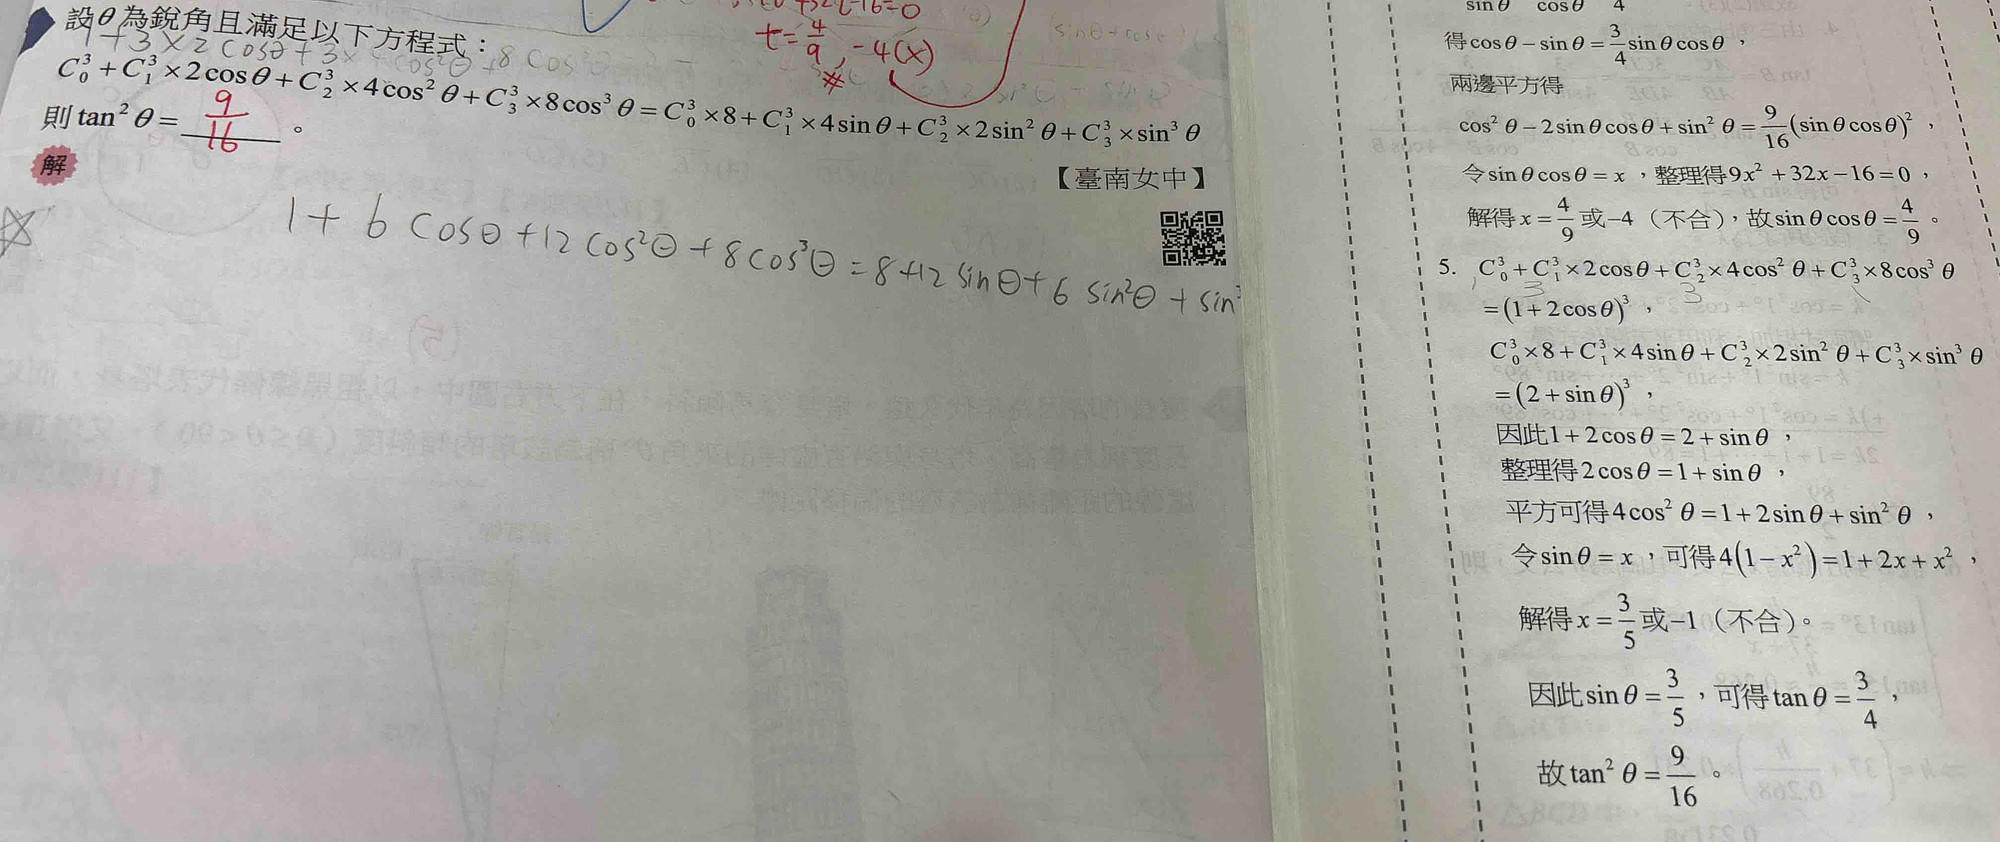 設θ為銳角且滿足以下方程式：
C₀³+C₁³×2cosθ+C₂³×4cos²θ+C₃³×8cos³θ=C₀³×8+C₁³×4sinθ+C₂³×2sin²θ+C₃³×sin³θ
則tan²θ= 9/16 。
【臺南女中】
解
1+6cosθ+12cos²θ+8cos³θ=8+12sinθ+6sin²θ+sin³
t=4/9, -4(x)
#
sinθ cosθ 4
得cosθ−sinθ=3/4 sinθcosθ，
兩邊平方得
cos²θ−2sinθcosθ+sin²θ=9/16(sinθcosθ)²，
令sinθcosθ=x，整理得9x²+32x−16=0，
解得x=4/9或−4（不合），故sinθcosθ=4/9。
5. C₀³+C₁³×2cosθ+C₂³×4cos²θ+C₃³×8cos³θ
3 3
=(1+2cosθ)³，
C₀³×8+C₁³×4sinθ+C₂³×2sin²θ+C₃³×sin³θ
=(2+sinθ)³，
因此1+2cosθ=2+sinθ，
整理得2cosθ=1+sinθ，
平方可得4cos²θ=1+2sinθ+sin²θ，
令sinθ=x，可得4(1−x²)=1+2x+x²，
解得x=3/5或−1（不合）。
因此sinθ=3/5，可得tanθ=3/4，
故tan²θ=9/16。